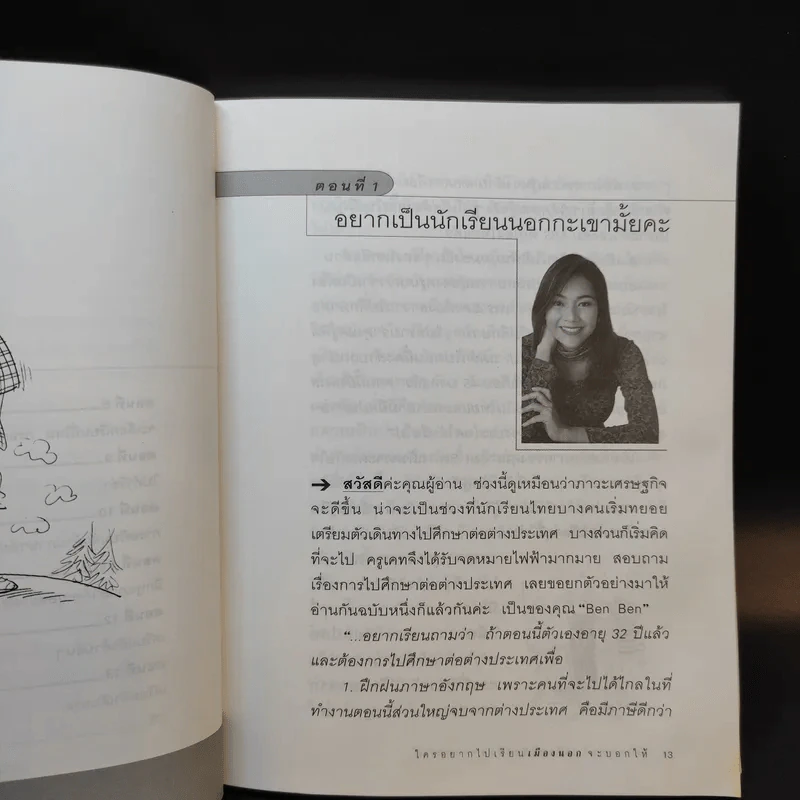 ตอนที่ 1
อยากเป็นนักเรียนนอกกะเขามั้ยคะ
➔ สวัสดีค่ะคุณผู้อ่าน ช่วงนี้ดูเหมือนว่าภาวะเศรษฐกิจ
จะดีขึ้น น่าจะเป็นช่วงที่นักเรียนไทยบางคนเริ่มทยอย
เตรียมตัวเดินทางไปศึกษาต่อต่างประเทศ บางส่วนก็เริ่มคิด
ที่จะไป ครูเคทจึงได้รับจดหมายไฟฟ้ามากมาย สอบถาม
เรื่องการไปศึกษาต่อต่างประเทศ เลยขอยกตัวอย่างมาให้
อ่านกันฉบับหนึ่งก็แล้วกันค่ะ เป็นของคุณ "Ben Ben"
"...อยากเรียนถามว่า ถ้าตอนนี้ตัวเองอายุ 32 ปีแล้ว
และต้องการไปศึกษาต่อต่างประเทศเพื่อ
1. ฝึกฝนภาษาอังกฤษ เพราะคนที่จะไปได้ไกลในที่
ทำงานตอนนี้ส่วนใหญ่จบจากต่างประเทศ คือมีภาษีดีกว่า
ใครอยากไปเรียนเมืองนอกจะบอกให้ 13